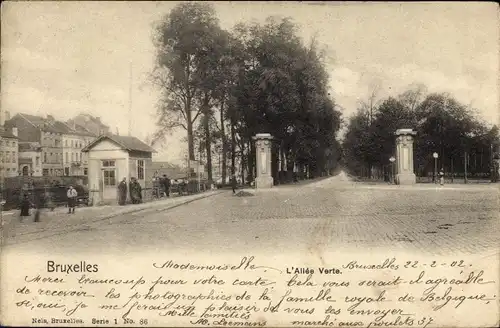 Bruxelles
L'Allée Verte.
Mademoiselle
Bruxelles 22-2-02.
Merci beaucoup pour votre carte. Cela vous serait-il agréable
de recevoir les photographies de la famille royale de Belgique
si oui, je me ferais un plaisir de vous les envoyer
Mille remerciements
marché aux poulets 37
Nels, Bruxelles. Serie 1 No. 86